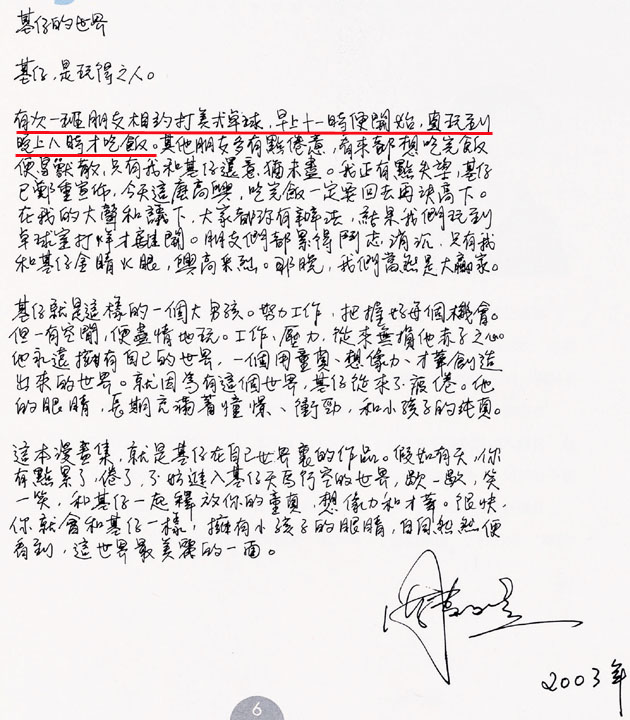 基仔的世界
基仔，是玩得之人。
有次一班朋友相約打美式桌球，早上十一時便開始，直玩到
晚上八時才吃飯。其他朋友多有點倦意，看來都想吃完飯
便冒獸散，只有我和基仔還意猶未盡。我正有點失望，基仔
已鄭重宣佈，今天這麼高興，吃完飯一定要回去再決高下。
在我的大聲和議下，大家都沒有辦法，結果我們玩到
桌球室打烊才離開。朋友們都累得鬥志消沉，只有我
和基仔金睛火眼，興高采烈。那晚，我們當然是大贏家。
基仔就是這樣的一個大男孩。努力工作，把握好每個機會。
但一有空閒，便盡情地玩。工作、壓力，從來無損他赤子之心
他永遠擁有自己的世界，一個用童真、想像力、才華創造
出來的世界。就因為有這個世界，基仔從來不疲倦。他
的眼睛，長期充滿著憧憬、衝勁，和小孩子的純真。
這本漫畫集，就是基仔在自己世界裏的作品。假如有天，你
有點累了，倦了，不妨進入基仔天馬行空的世界，歇一歇，笑
一笑，和基仔一起釋放你的童真，想像力和才華。很快，
你就會和基仔一樣，擁有小孩子的眼睛，自自然然便
看到，這世界最美麗的一面。
2003年
6